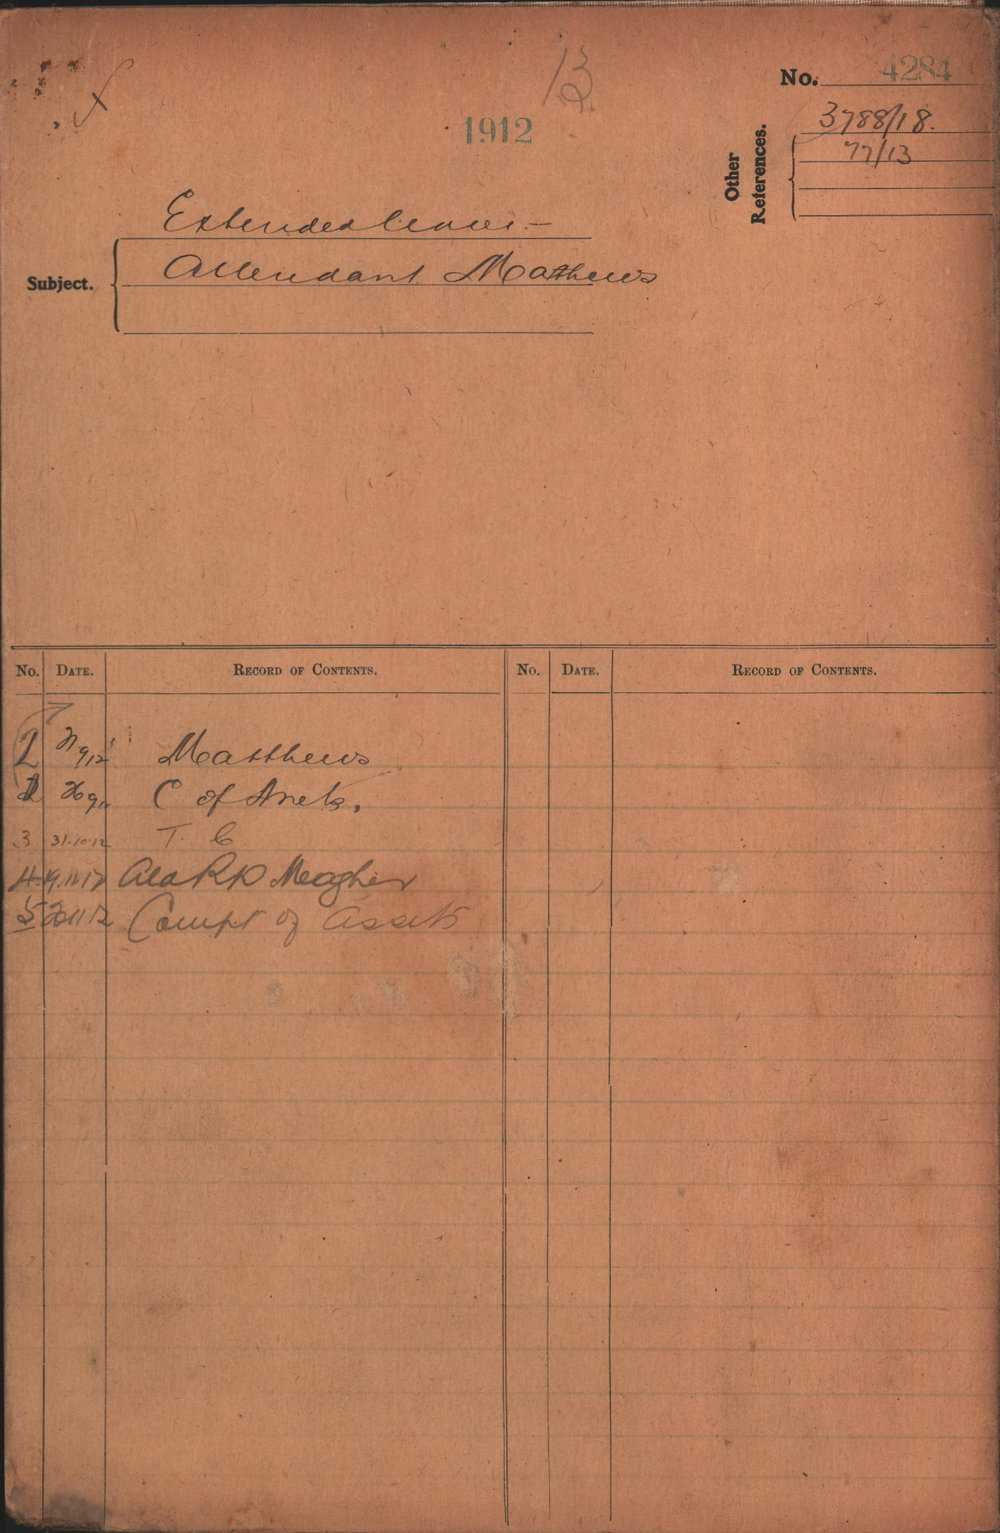 No. 4284
1912
Other References.
3788/18.
77/13
Subject.
Extended leave:-
Attendant Matthews
No. DATE. RECORD OF CONTENTS. No. DATE. RECORD OF CONTENTS.
1 Matthews
2 C of Assets.
3 31.10.12 T. C
4 Meagher
5 Compt of Assets